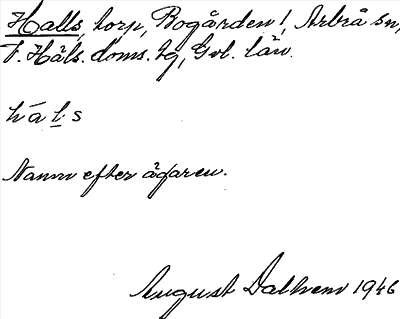 Halls, torp, Rogården!, Arbrå sn,
V. Häls. doms. tg, Gvl. län.
há l s
Namn efter ägaren.
August Dalhem 1946